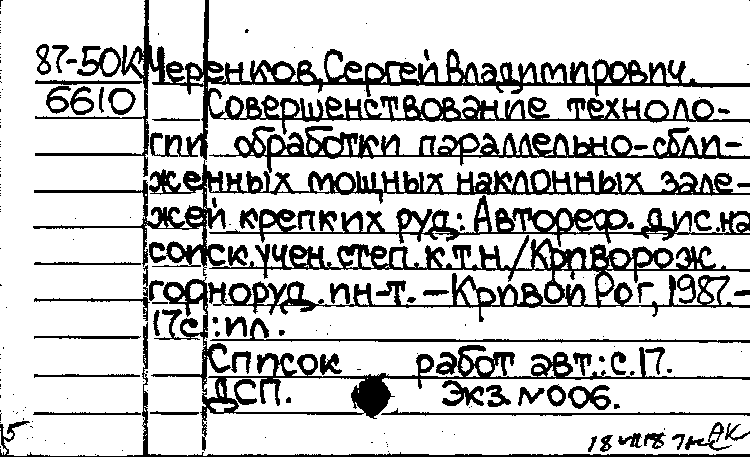 87-50К Черенков, Сергей Владимирович.
6610 Совершенствование техноло-
гии обработки параллельно-сбли-
женных мощных наклонных зале-
жей крепких руд: Автореф. дис. на
соиск. учен. степ. к.т.н./Криворож.
горноруд. ин-т. — Кривой Рог, 1987. —
17с.: ил.
Список работ авт.: с.17.
ДСП. Экз. №006.
5